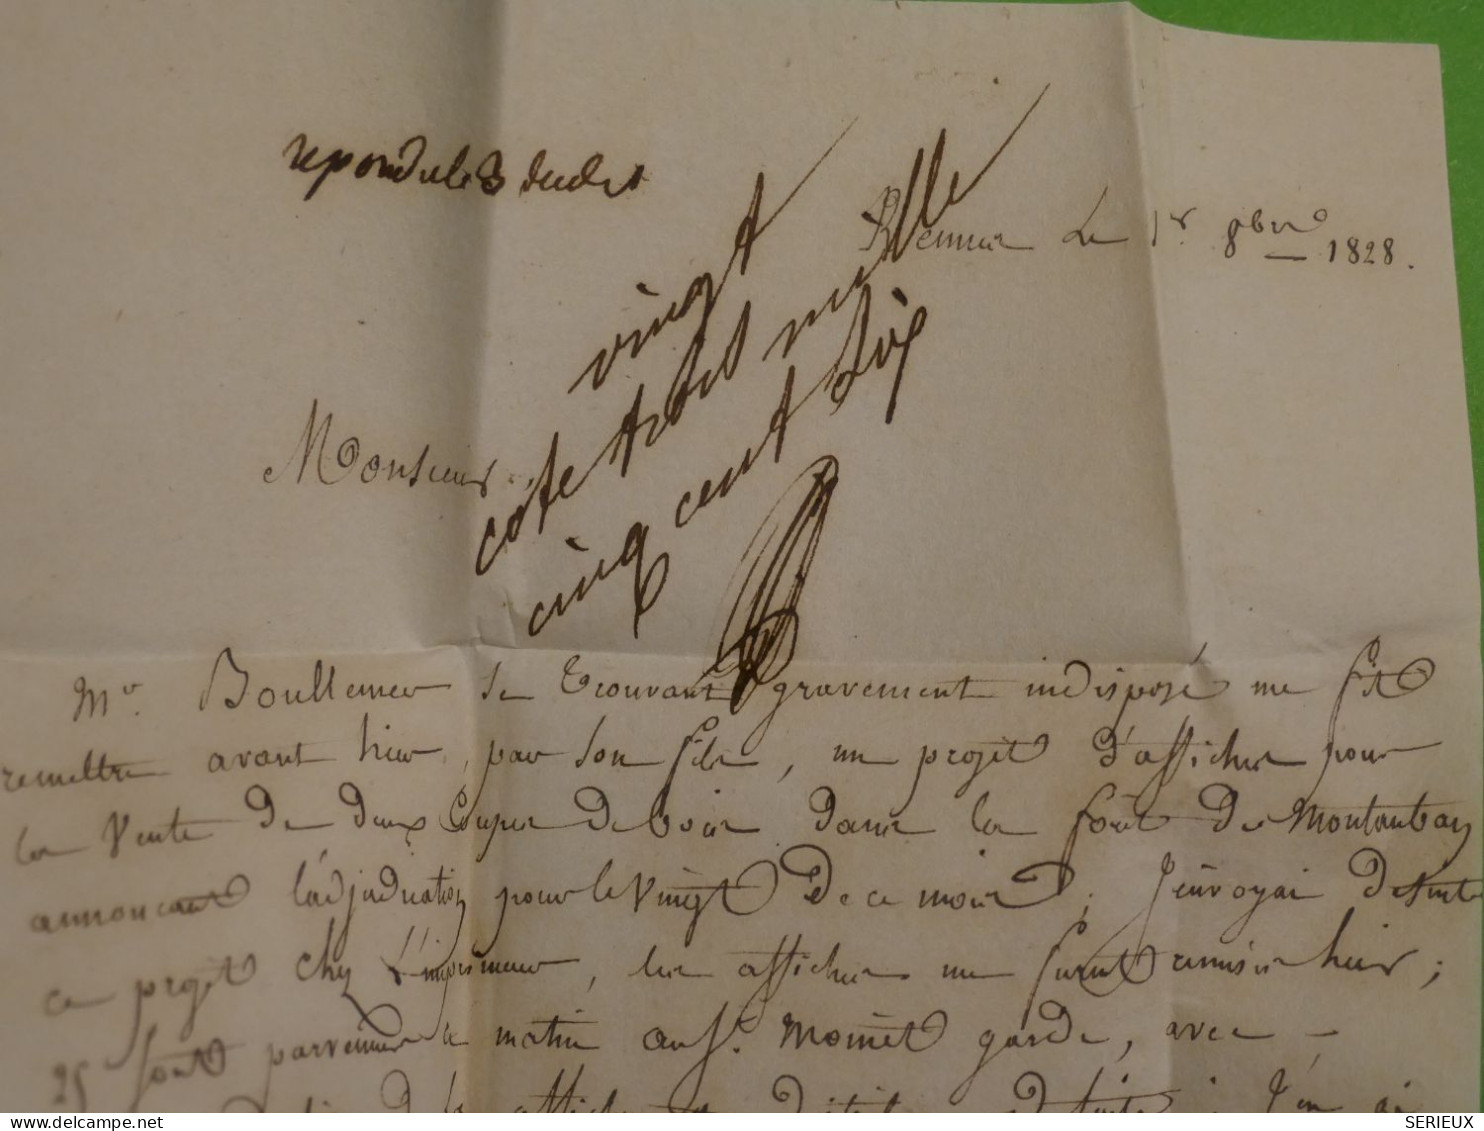 repondu le 3 dudit
Rennes Le 1r 8bre 1828.
vingt
mille
cinq cent dix
Monsieur,
Mr. Boullemer se trouvant gravement indisposé me fit
remettre avant hier, par son fils, un projet d'affiches pour
la Vente de deux Coupes de bois dans la foret de Montauban
annoncant l'adjudication pour le vingt de ce mois; J'envoyai de suite
ce projet chez L'imprimeur, les affiches me furent remises hier;
25 sont parvenues ce matin au Sr. Moinet garde, avec
affiches de suite; J'en ai
SERIEUX